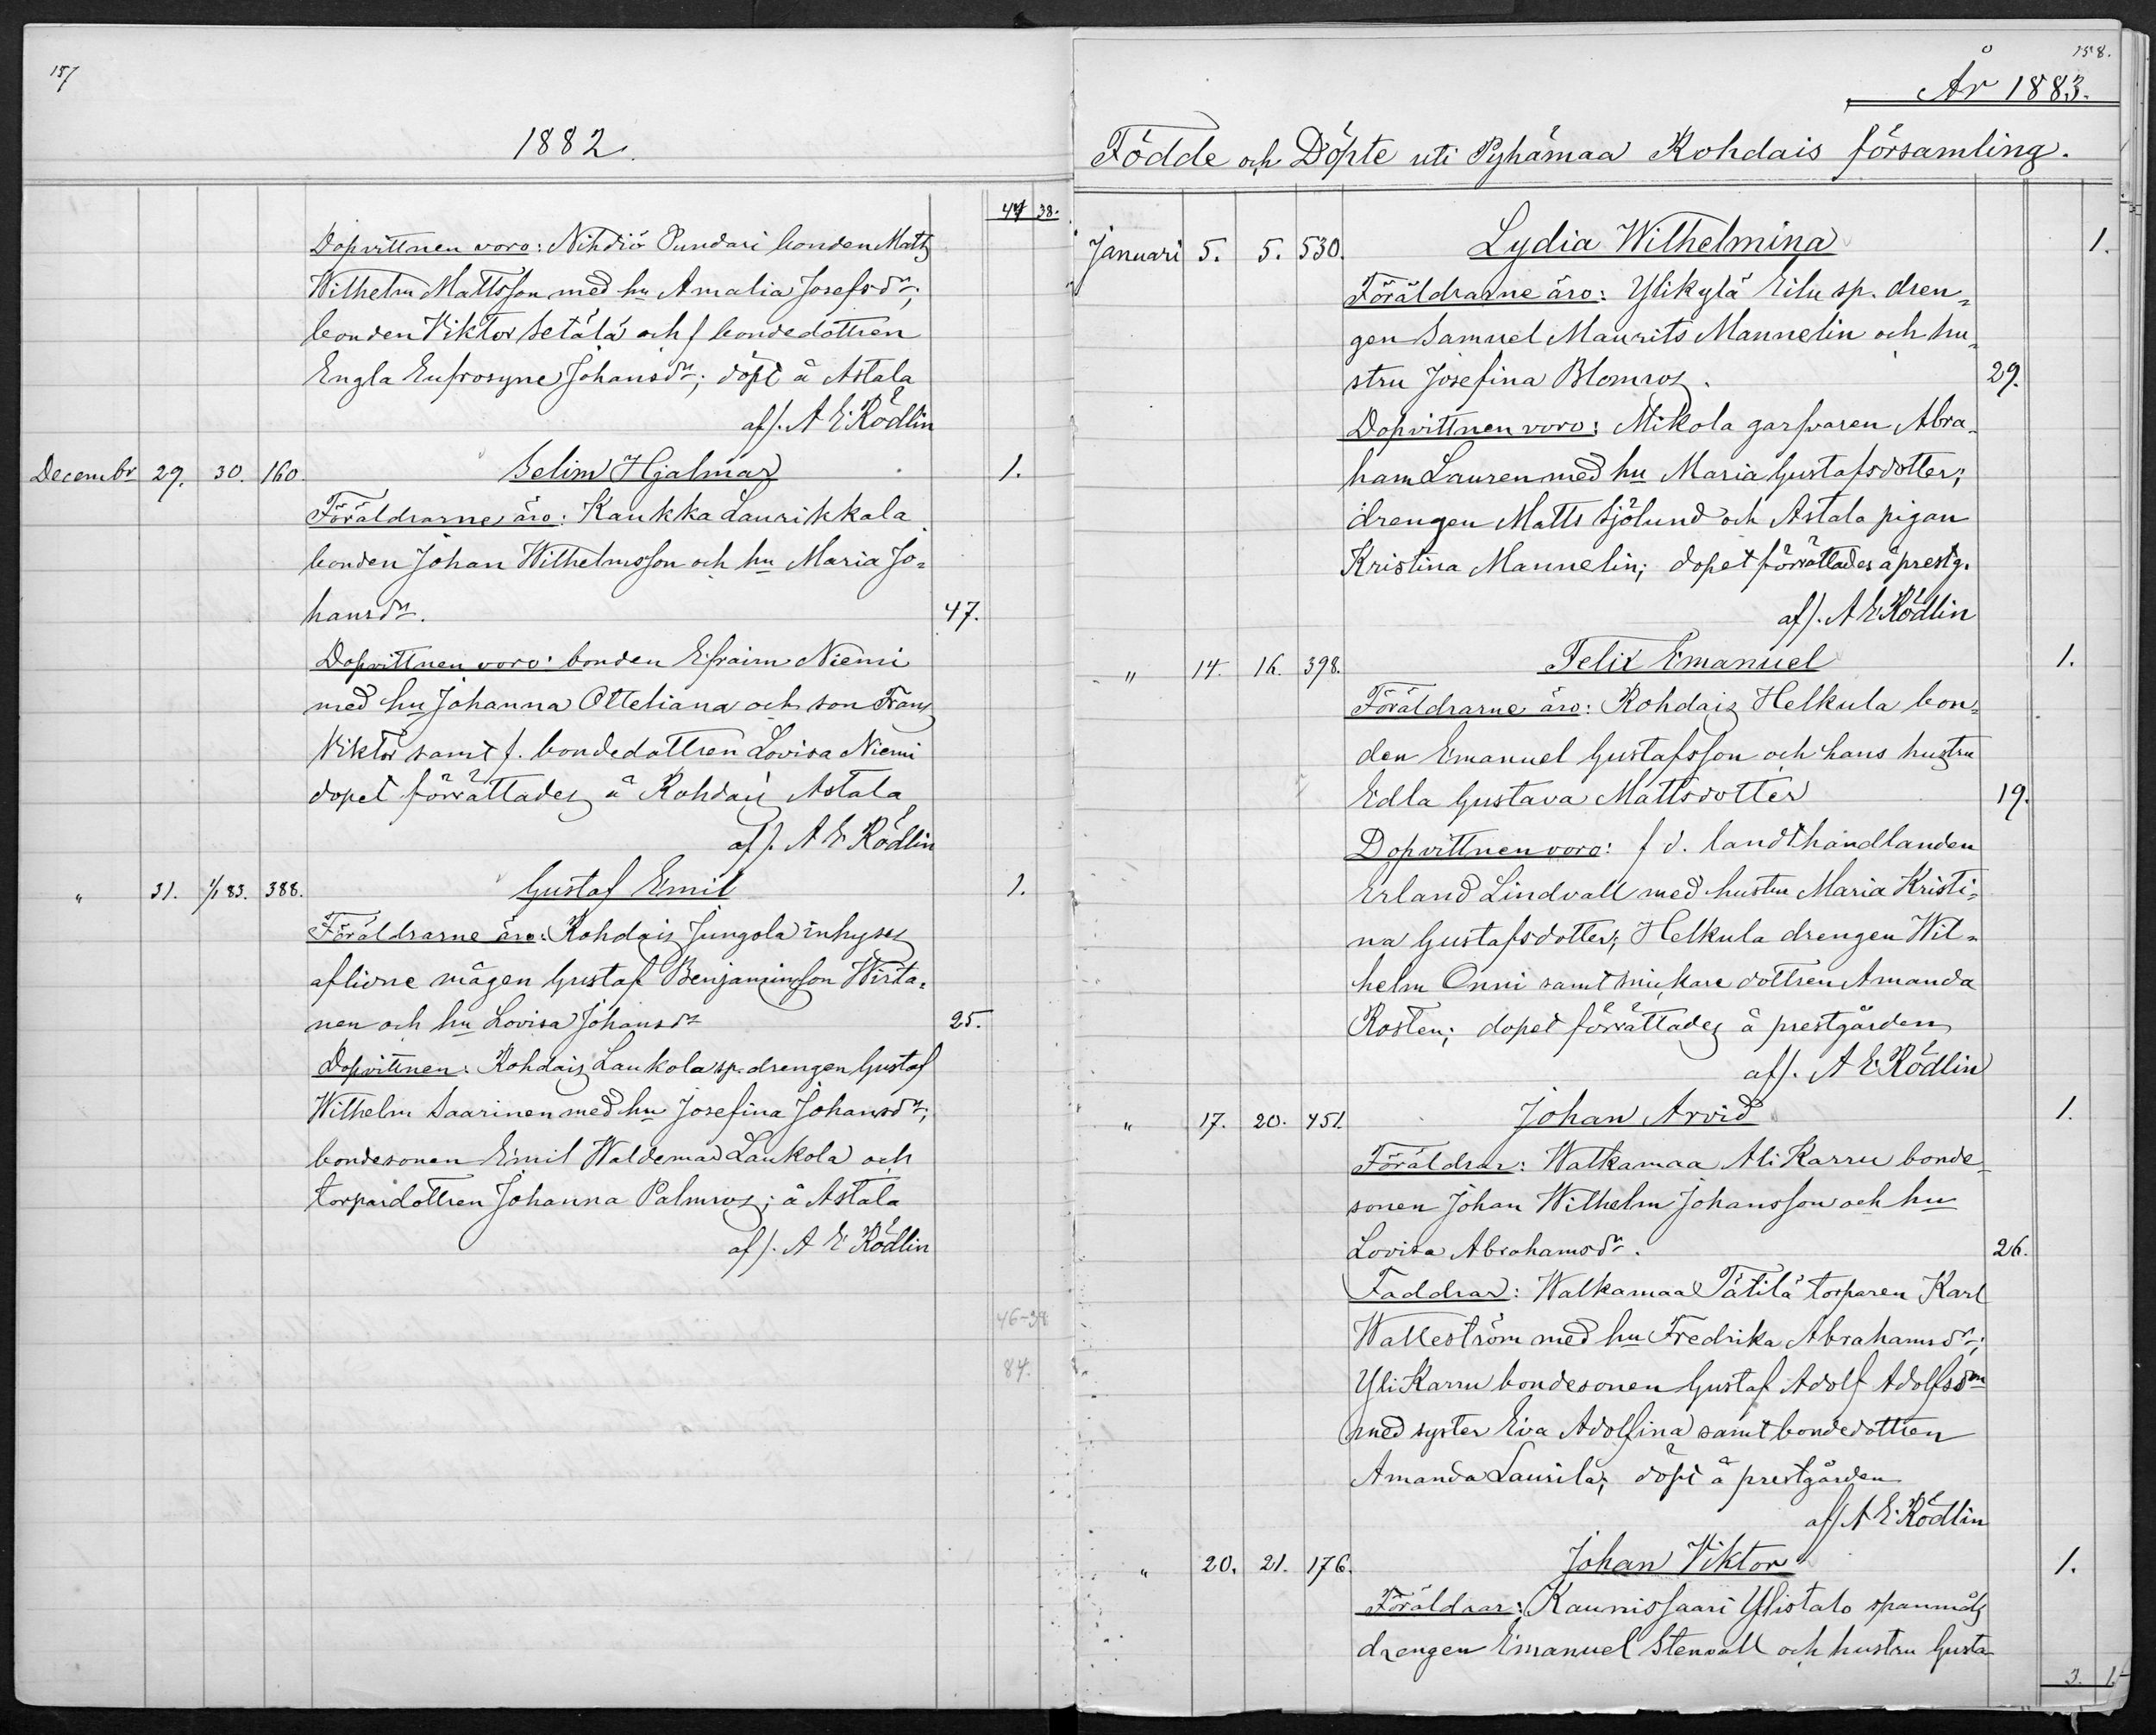 157
1882.
44 38.
Dopvittnen voro: Nihdiö Pundari bonden Matts
Wilhelm Mattsson med hu Amalia Josefsdr;
bonden Viktor Setälä och f bondedottren
Engla Eufrosyne Johansdr; döpt å Astala
af/. A E Rödlin
Decembr 29. 30. 160. Selim Hjalmar 1.
Föräldrarne äro: Kaukka Laurikkala
bonden Johan Wilhelmsson och hu Maria Jo-
hansdr. 47.
Dopvittnen voro: bonden Efraim Niemi
med hu Johanna Otteliana och son Frans
Viktor samt f. bondedottren Lovisa Niemi
dopet förrättades å Rohdais Astala
af/. A E Rödlin
" 31. 1/1 83. 388. Gustaf Emil 1.
Föräldrarne äro: Rohdais Jungola inhyses
aflidne mågen Gustaf Benjaminsson Wirta-
nen och hu Lovisa Johansdr 25.
Dopvittnen: Rohdais Laukola sp. drengen Gustaf
Wilhelm Saarinen med hu Josefina Johansdr;
bondesonen Emil Waldemar Laukola och
torpardottren Johanna Palmros; å Astala
af/. A E Rödlin
46-38
84.
158.
År 1883.
Födde och Döpte uti Pyhämaa Rohdais församling.
Januari 5. 5. 530. Lydia Wilhelmina 1.
Föräldrarne äro: Ylikylä Eilu sp. dren-
gen Samuel Maurits Mannelin och hu-
stru Josefina Blomros. 29.
Dopvittnen voro: Mikola garfvaren Abra-
ham Lauren med hu Maria Gustafsdotter;
drengen Matts Sjölund och Astala pigan
Kristina Mannelin; dopet förrättades å prestg.
af/. A E Rödlin
" 14. 16. 398. Felix Emanuel 1.
Föräldrarne äro: Rohdais Helkula bon-
den Emanuel Gustafsson och hans hustru
Edla Gustava Mattsdotter 19.
Dopvittnen voro: f d. landthandlanden
Erland Lindvall med hustru Maria Kristi-
na Gustafsdotter; Helkula drengen Wil-
helm Onni samt snickare dottren Amanda
Rosten; dopet förrättades å prestgården
af/. A E Rödlin
" 17. 20. 451. Johan Arvid 1.
Föräldrar: Walkamaa Ali Karru bonde-
sonen Johan Wilhelm Johansson och hu
Lovisa Abrahamsdr. 26.
Faddrar: Walkamaa Tätilä torparen Karl
Walleström med hu Fredrika Abrahamsdr;
Yli Karru bondesonen Gustaf Adolf Adolfsson
med syster Eva Adolfina samt bondedottren
Amanda Laurila; döpt å prestgården
af/ A E Rödlin
" 20. 21. 176. Johan Viktor 1.
Föräldrar: Kaunissaari Ylistalo spanmåls
drengen Emanuel Stenvall och hustru Gusta-
3. 1.